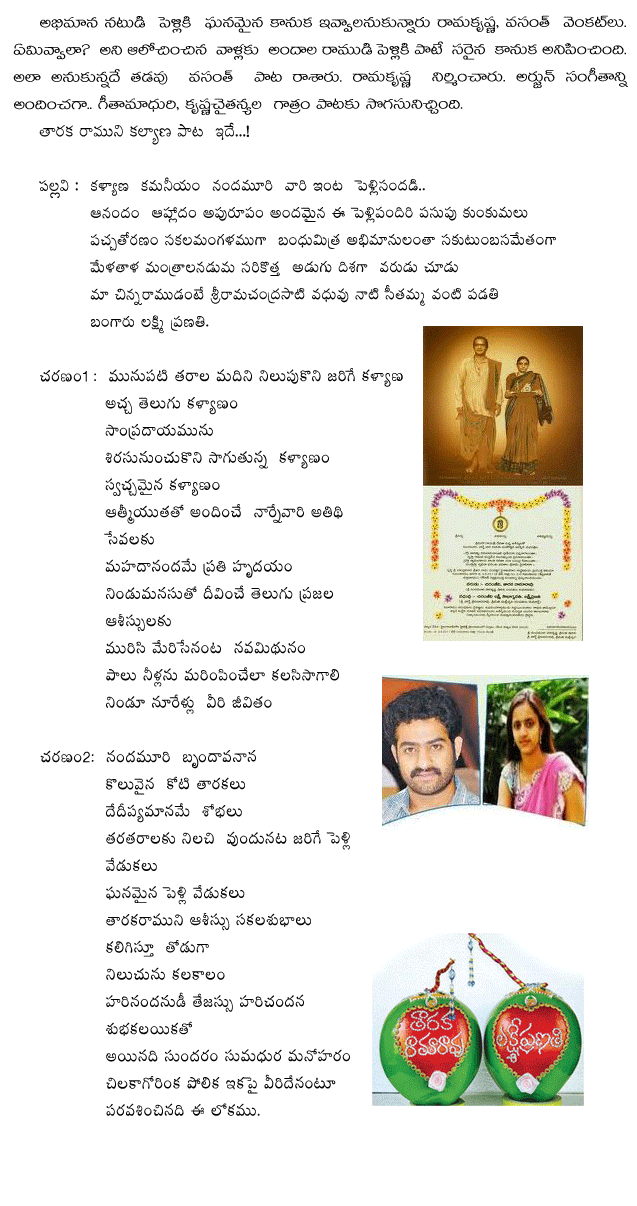 అభిమాన నటుడి పెళ్లికి ఘనమైన కానుక ఇవ్వాలనుకున్నారు రామకృష్ణ, వసంత్ వెంకట్‌లు.
ఏమివ్వాలా? అని ఆలోచించిన వాళ్లకు అందాల రాముడి పెళ్లికి పాటే సరైన కానుక అనిపించింది.
అలా అనుకున్నదే తడవు వసంత్ పాట రాశారు. రామకృష్ణ నిర్మించారు. అర్జున్ సంగీతాన్ని
అందించగా.. గీతామాధురి, కృష్ణచైతన్యల గాత్రం పాటకు సొగసునిచ్చింది.
తారక రాముని కల్యాణ పాట ఇదే...!
పల్లవి : కళ్యాణ కమనీయం నందమూరి వారి ఇంట పెళ్లిసందడి..
ఆనందం ఆహ్లాదం అపురూపం అందమైన ఈ పెళ్లిపందిరి పసుపు కుంకుమలు
పచ్చతోరణం సకలమంగళముగా బంధుమిత్ర అభిమానులంతా సకుటుంబసమేతంగా
మేళతాళ మంత్రాలనడుమ సరికొత్త అడుగు దిశగా వరుడు చూడు
మా చిన్నరాముడంటే శ్రీరామచంద్రసాటి వధువు నాటి సీతమ్మ వంటి పడతి
బంగారు లక్ష్మి ప్రణతి.
చరణం1 : మునుపటి తరాల మదిని నిలుపుకొని జరిగే కళ్యాణ
అచ్చ తెలుగు కళ్యాణం
సాంప్రదాయమును
శిరసునుంచుకొని సాగుతున్న కళ్యాణం
స్వచ్చమైన కళ్యాణం
ఆత్మీయుతతో అందించే నార్నేవారి అతిథి
సేవలకు
మహదానందమే ప్రతి హృదయం
నిండుమనసుతో దీవించే తెలుగు ప్రజల
ఆశీస్సులకు
మురిసి మేరిసేనంట నవమిథునం
పాలు నీళ్లను మరింపించేలా కలసిసాగాలి
నిండూ నూరేళ్లు వీరి జీవితం
చరణం2: నందమూరి బృందావనాన
కొలువైన కోటి తారకలు
దేదీప్యమానమే శోభలు
తరతరాలకు నిలచి వుందునట జరిగే పెళ్లి
వేడుకలు
ఘనమైన పెళ్లి వేడుకలు
తారకరాముని ఆశీస్సు సకలశుభాలు
కలిగిస్తూ తోడుగా
నిలుచును కలకాలం
హరినందనుడీ తేజస్సు హరిచందన
శుభకలయికతో
అయినది సుందరం సుమధుర మనోహరం
చిలకాగోరింక పోలిక ఇకపై వీరిదేనంటూ
పరవశించినది ఈ లోకము.
తారక
రామారావు
లక్ష్మీప్రణతి